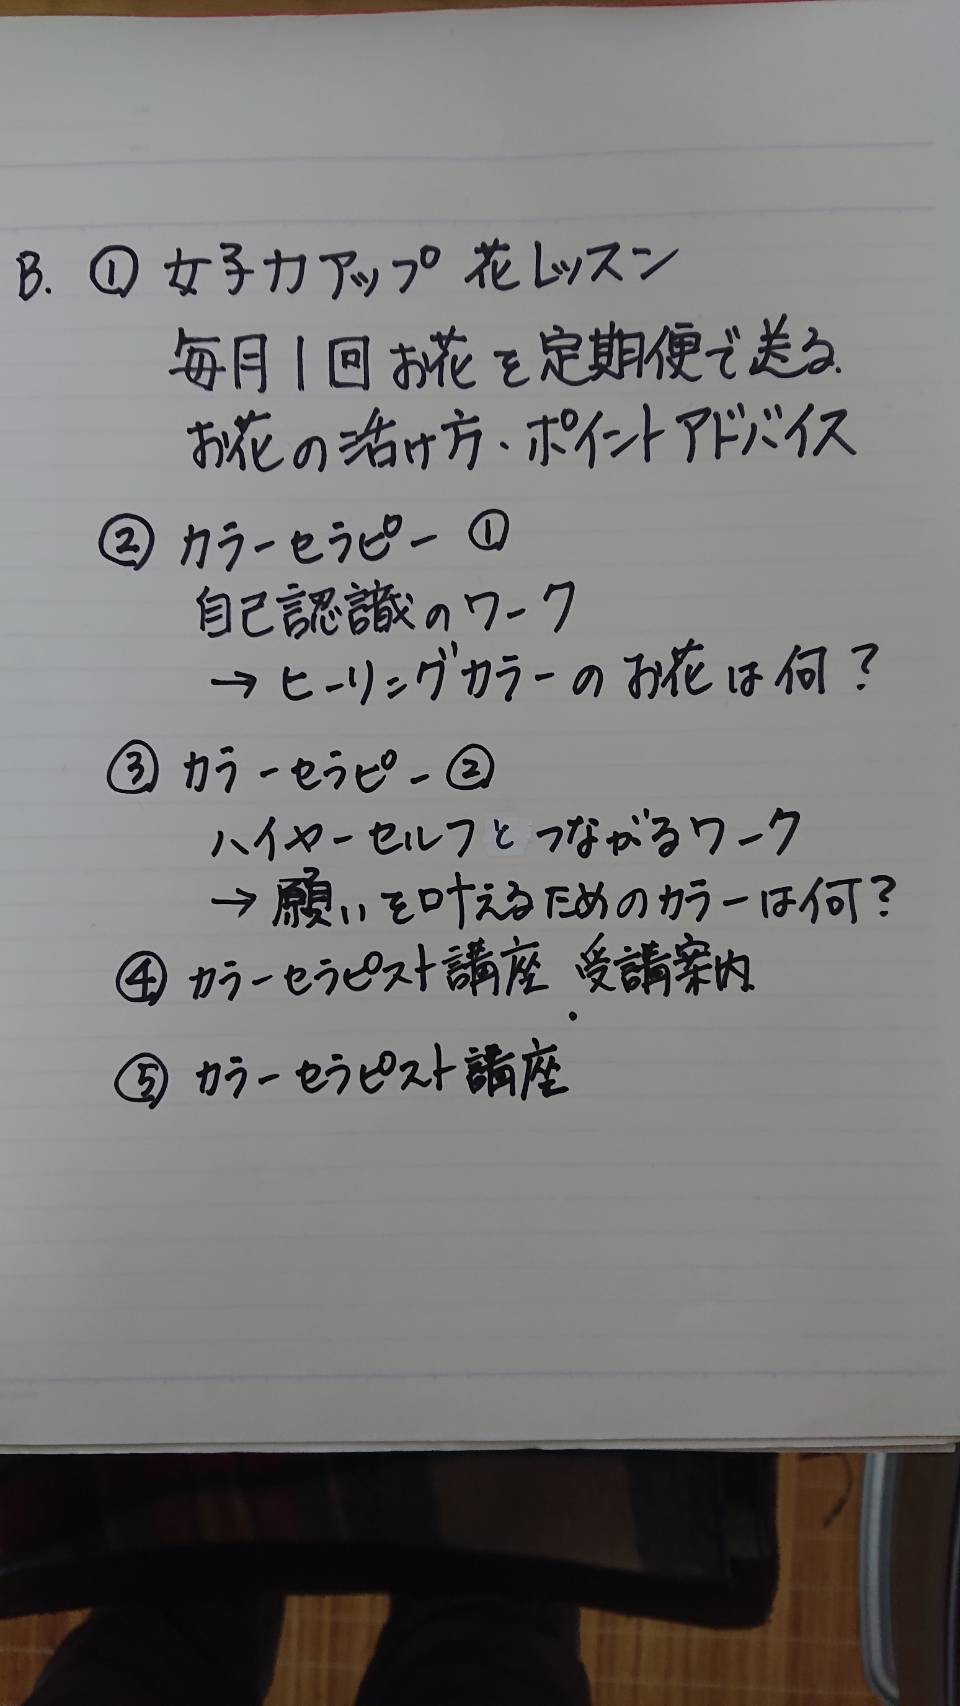 B. ① 女子力アップ 花レッスン
毎月1回お花を定期便で送る.
お花の活け方・ポイントアドバイス
② カラーセラピー ①
自己認識のワーク
→ ヒーリングカラーのお花は何?
③ カラーセラピー ②
ハイヤーセルフとつながるワーク
→ 願いを叶えるためのカラーは何?
④ カラーセラピスト講座 受講案内
⑤ カラーセラピスト講座